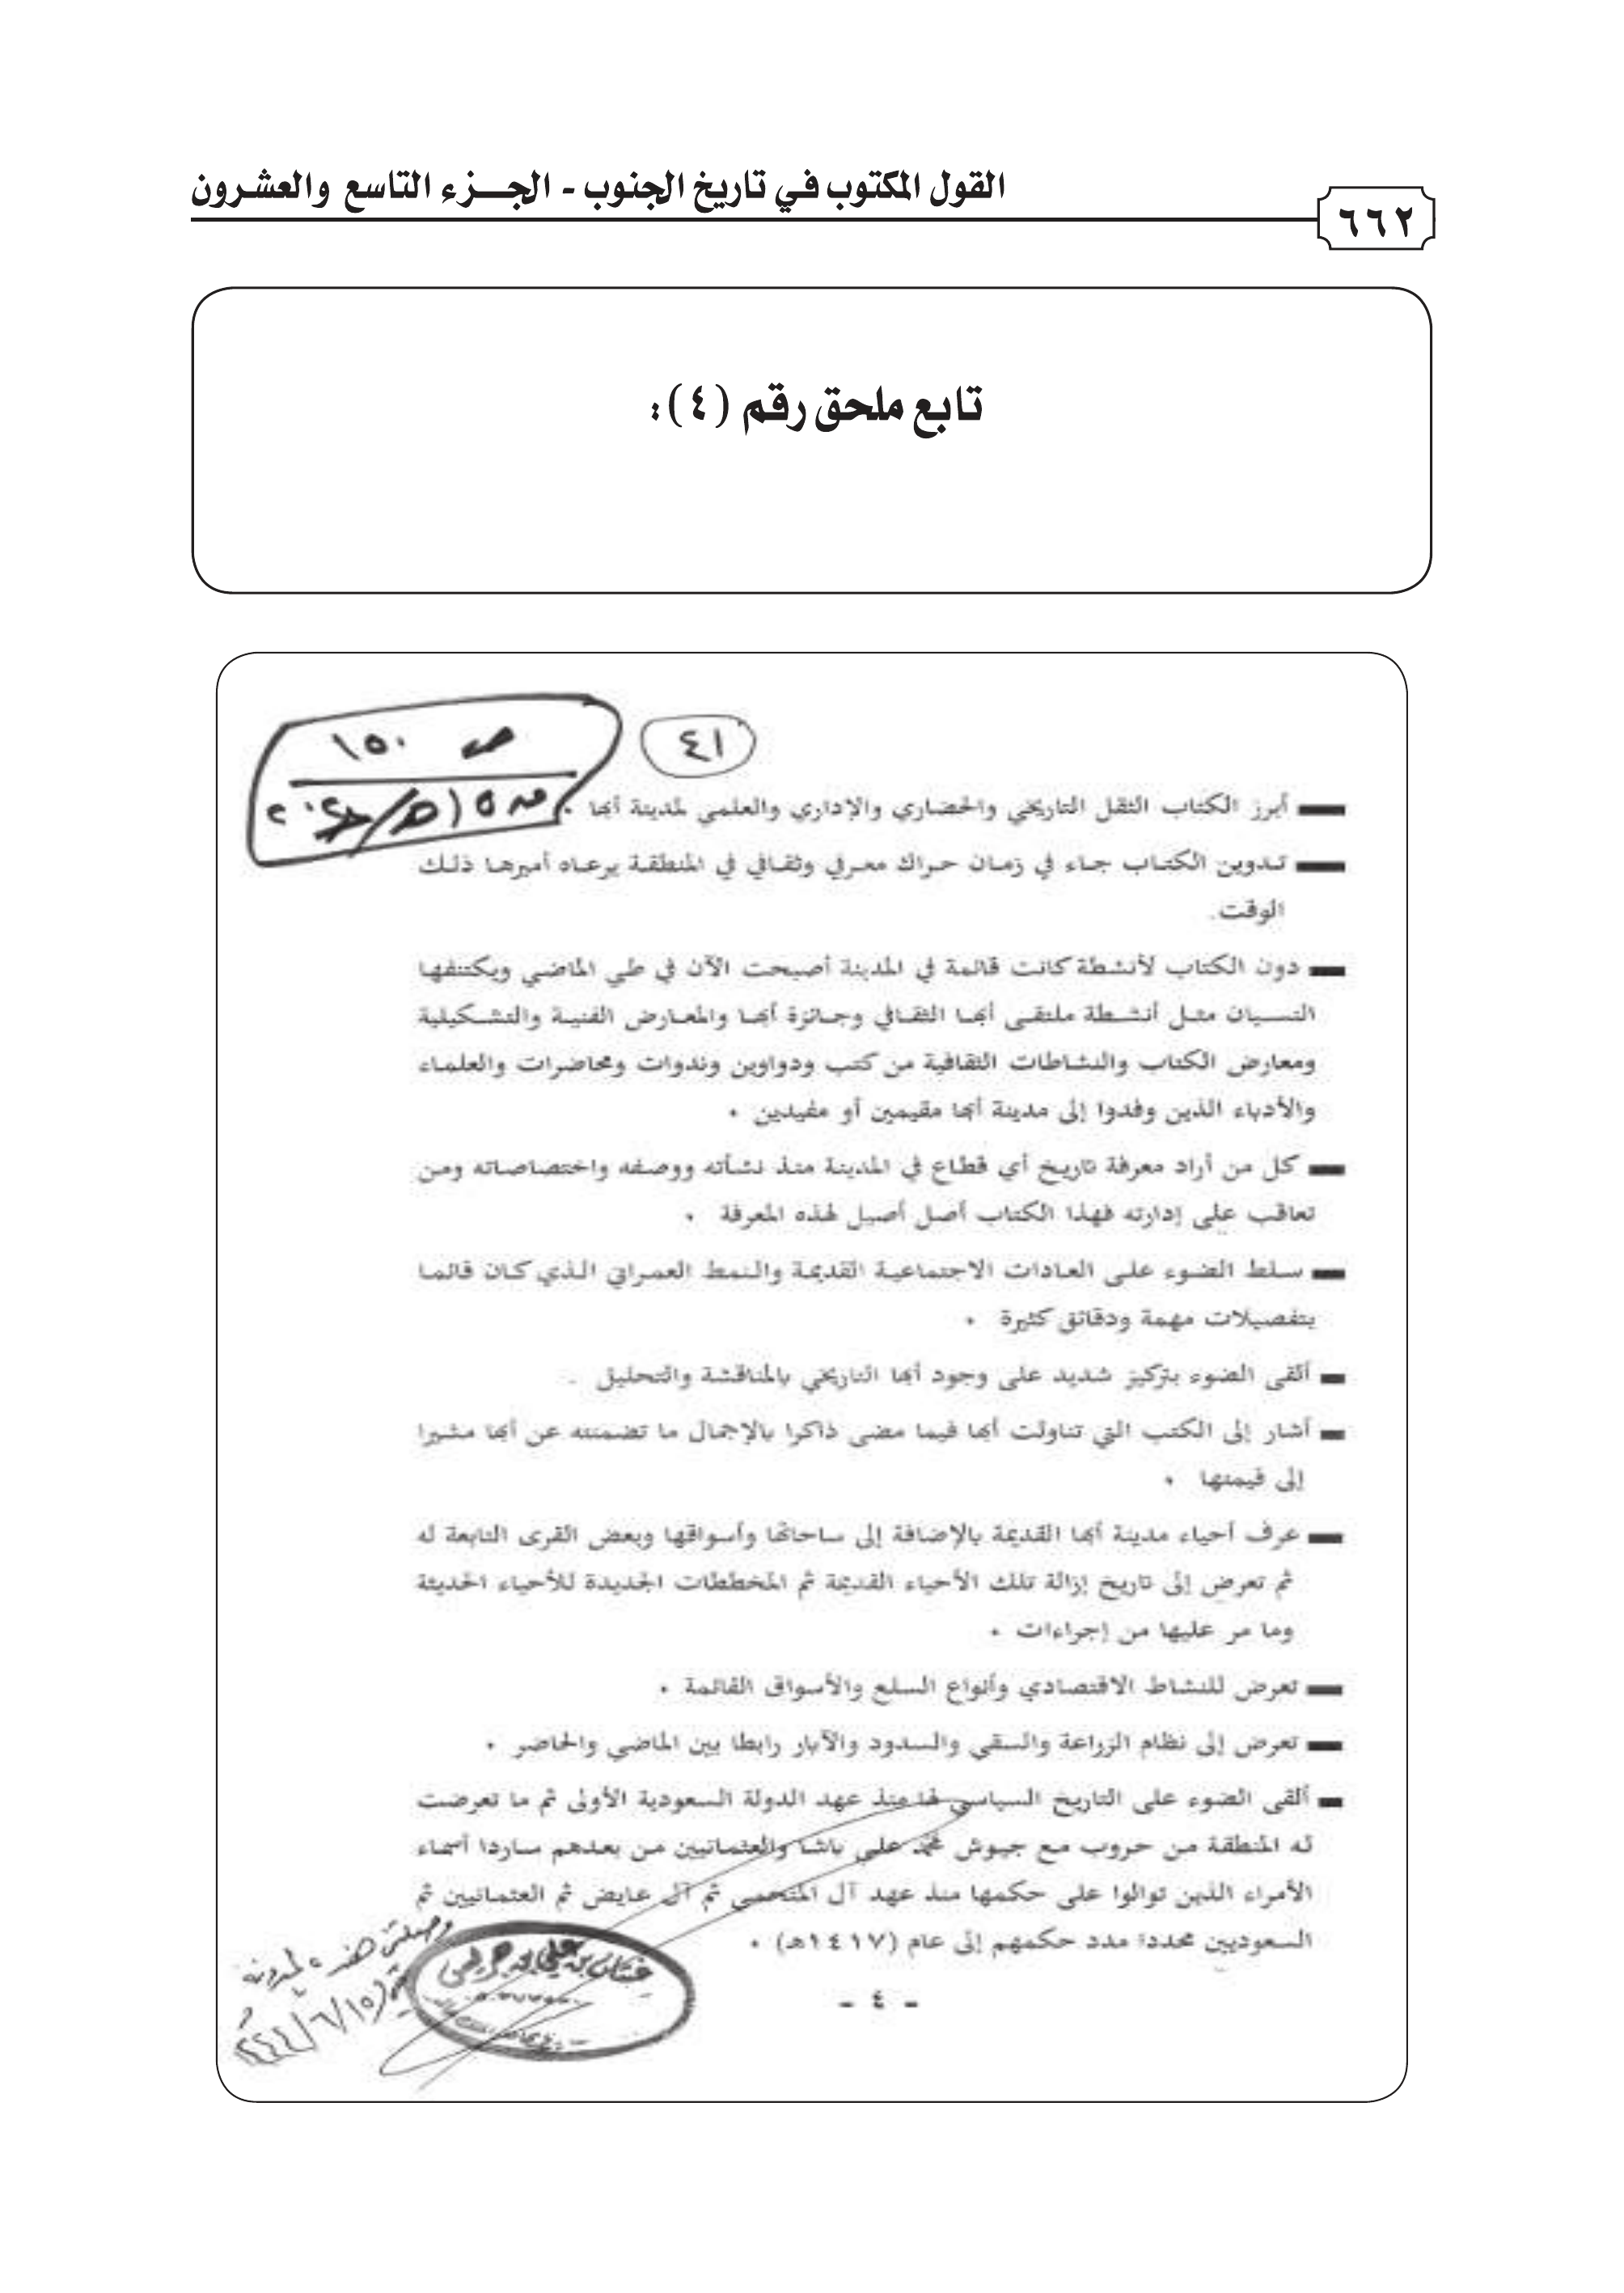 القول المكتوب في تاريخ الجنوب - الجزء التاسع والعشرون
٦٦٢
تابع ملحق رقم (٤):
ص ١٥٠
٤١
أبرز الكتاب الثقل التاريخي والحضاري والإداري والعلمي لمدينة أبها .
تدوين الكتاب جاء في زمان حراك معرفي وثقافي في المنطقة يرعاه أميرها ذلك
الوقت.
دون الكتاب لأنشطة كانت قائمة في المدينة أصبحت الآن في طي الماضي ويكتنفها
النسيان مثل أنشطة ملتقى أبها الثقافي وجائزة أبها والمعارض الفنية والتشكيلية
ومعارض الكتاب والنشاطات الثقافية من كتب ودواوين وندوات ومحاضرات والعلماء
والأدباء الذين وفدوا إلى مدينة أبها مقيمين أو مفيدين .
كل من أراد معرفة تاريخ أي قطاع في المدينة منذ نشأته ووصفه واختصاصاته ومن
تعاقب على إدارته فهذا الكتاب أصل أصيل لهذه المعرفة .
سلط الضوء على العادات الاجتماعية القديمة والنمط العمراني الذي كان قائما
بتفصيلات مهمة ودقائق كثيرة .
ألقى الضوء بتركيز شديد على وجود أبها التاريخي بالمناقشة والتحليل .
أشار إلى الكتب التي تناولت أبها فيما مضى ذاكرا بالإجمال ما تضمنته عن أبها مشيرا
إلى قيمتها .
عرف أحياء مدينة أبها القديمة بالإضافة إلى ساحاتها وأسواقها وبعض القرى التابعة له
ثم تعرض إلى تاريخ إزالة تلك الأحياء القديمة ثم المخططات الجديدة للأحياء الحديثة
وما مر عليها من إجراءات .
تعرض للنشاط الاقتصادي وأنواع السلع والأسواق القائمة .
تعرض إلى نظام الزراعة والسقي والسدود والآبار رابطا بين الماضي والحاضر .
ألقى الضوء على التاريخ السياسي لها منذ عهد الدولة السعودية الأولى ثم ما تعرضت
له المنطقة من حروب مع جيوش محمد علي باشا والعثمانيين من بعدهم ساردا أسماء
الأمراء الذين توالوا على حكمها منذ عهد آل المتحمي ثم آل عايض ثم العثمانيين ثم
السعوديين محددا مدد حكمهم إلى عام (١٤١٧هـ) .
غيثان بن علي بن جريس
- ٤ -